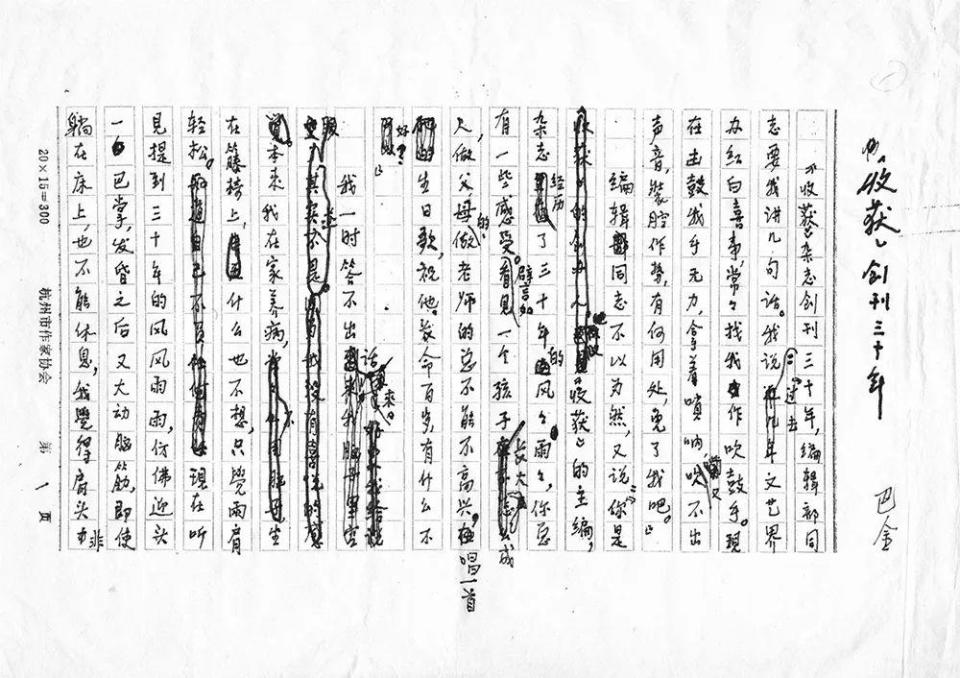 《“收获”创刊三十年
巴金
《收获》杂志创刊三十年,编辑部同
志要我讲几句话。我说:“过去几年文艺界
办红白喜事,常々找我作吹鼓手。现
在击鼓我手无力,含着唢呐,又吹不出
声音,装腔作势,有何用处,免了我吧。”
编辑同志不以为然,又说:“你是
《收获》的主编,
杂志经历了三十年的风々雨々,你总
有一些感受。譬如看见一个孩子长大成
人,做父母的、做老师的总不能不高兴,唱一首
生日歌,祝他长命百岁,有什么不
好?”
我一时答不出话来。
本来我在家养病,
在藤椅上,什么也不想,只觉两肩
轻松。现在听
见提到三十年的风风雨雨,仿佛迎头
一巴掌,发昏之后又大动脑筋,即使
躺在床上,也不能休息,我觉得肩头
20×15=300 杭州市作家协会 第 1 页